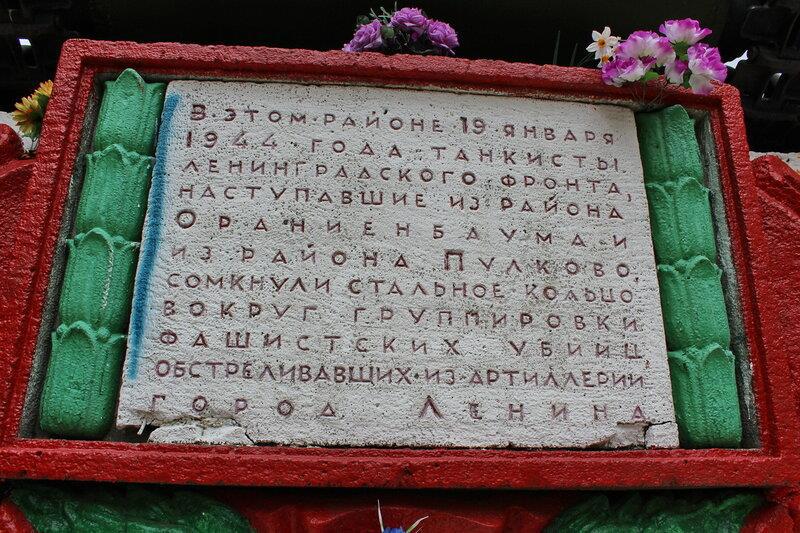 В ЭТОМ РАЙОНЕ 19 ЯНВАРЯ
1944 ГОДА ТАНКИСТЫ
ЛЕНИНГРАДСКОГО ФРОНТА,
НАСТУПАВШИЕ ИЗ РАЙОНА
ОРАНИЕНБАУМА И
ИЗ РАЙОНА ПУЛКОВО,
СОМКНУЛИ СТАЛЬНОЕ КОЛЬЦО
ВОКРУГ ГРУППИРОВКИ
ФАШИСТСКИХ УБИЙЦ
ОБСТРЕЛИВАВЩИХ ИЗ АРТИЛЛЕРИИ
ГОРОД ЛЕНИНА